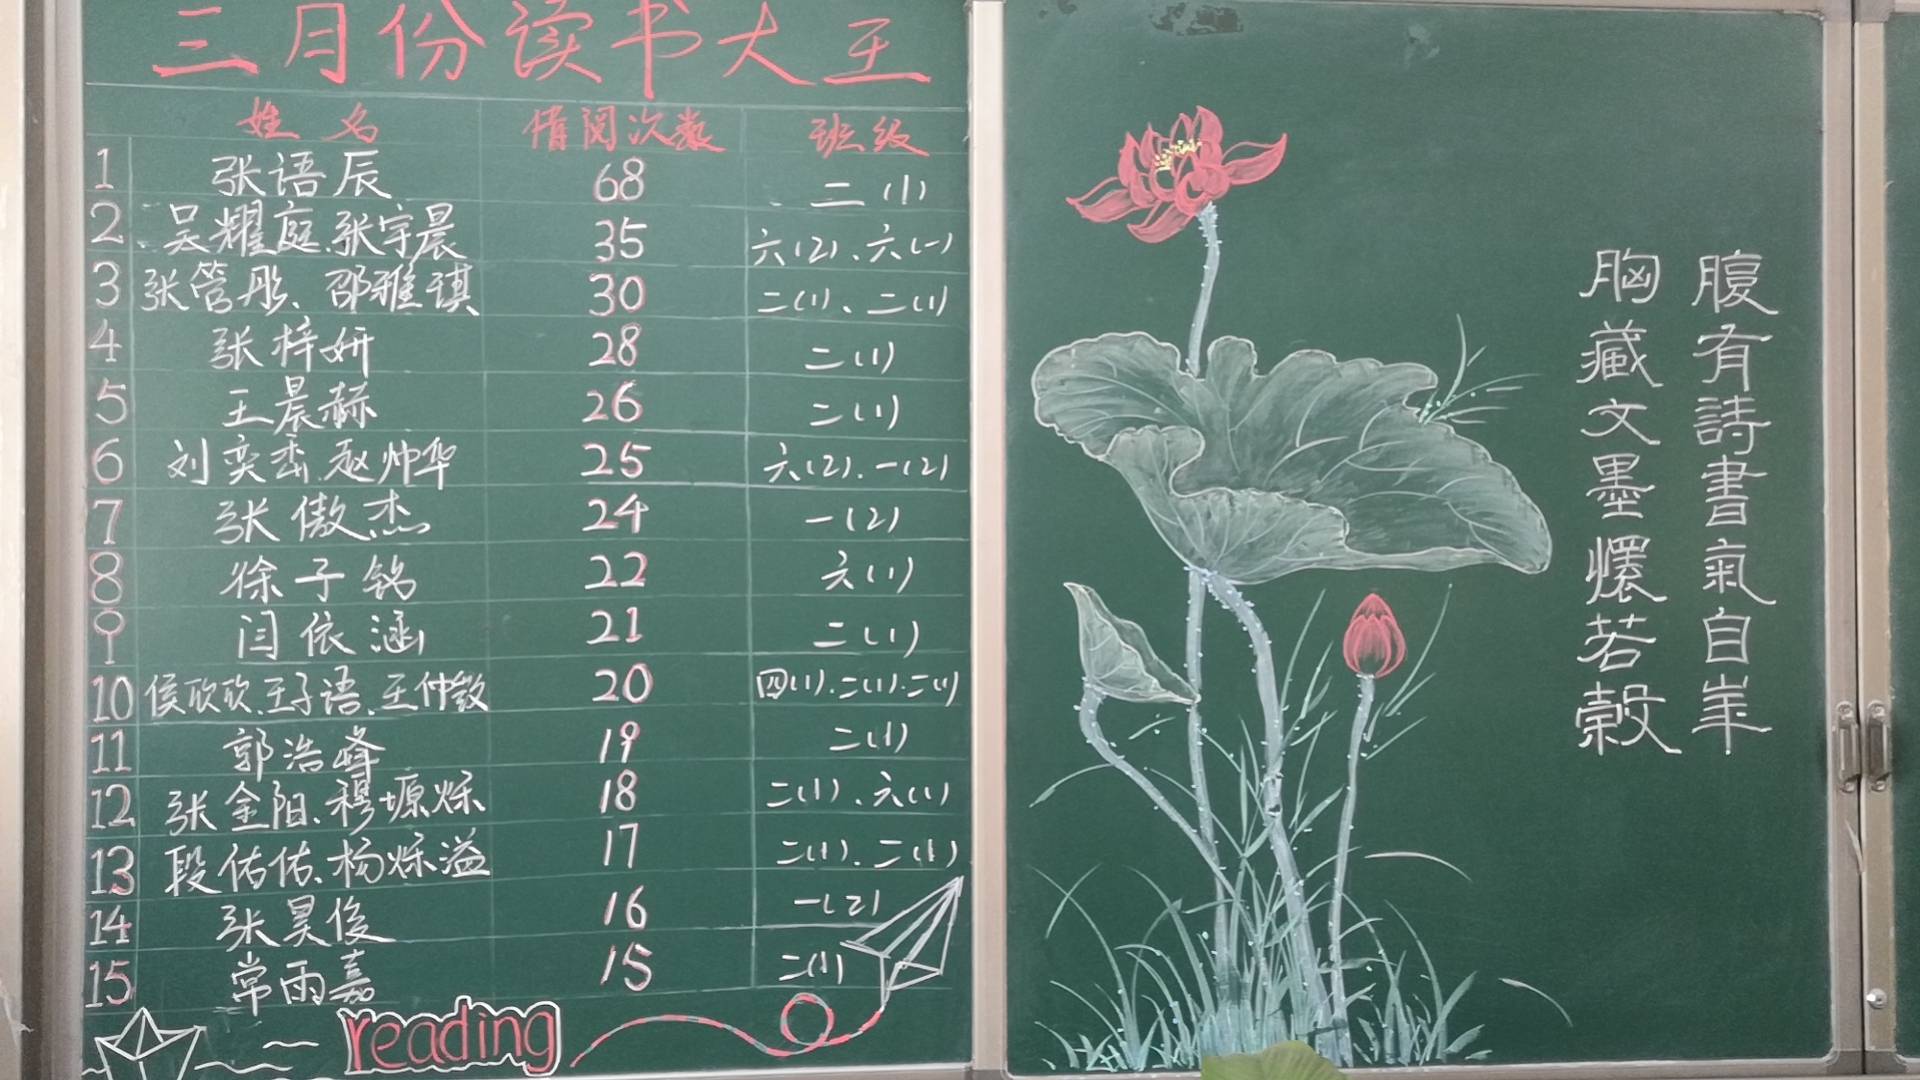 三月份读书大王
姓名 借阅次数 班级
1 张语辰 68 二(1)
2 吴耀庭、张宇晨 35 六(2)、六(一)
3 张管彤、邵雅琪 30 二(1)、二(1)
4 张梓妍 28 二(1)
5 王晨赫 26 二(1)
6 刘奕 赵帅华 25 六(2)、一(2)
7 张傲杰 24 一(2)
8 徐子铭 22 六(1)
9 闫依涵 21 二(1)
10 侯欣欣、王子语、王仲毅 20 四(1)、二(1)、二(1)
11 郭浩峰 19 二(1)
12 张金阳、穆塬烁 18 二(1)、六(1)
13 段佑佑、杨烁溢 17 二(1)、二(1)
14 张昊俊 16 一(2)
15 常雨嘉 15 二(1)
reading
腹有詩書氣自華
胸藏文墨懷若穀